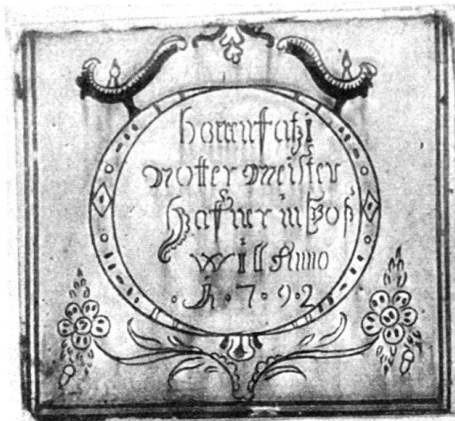 bonnifatzi
Notter Meister
Hafner in Boß
will Anno
· 1 · 7 · 9 · 2